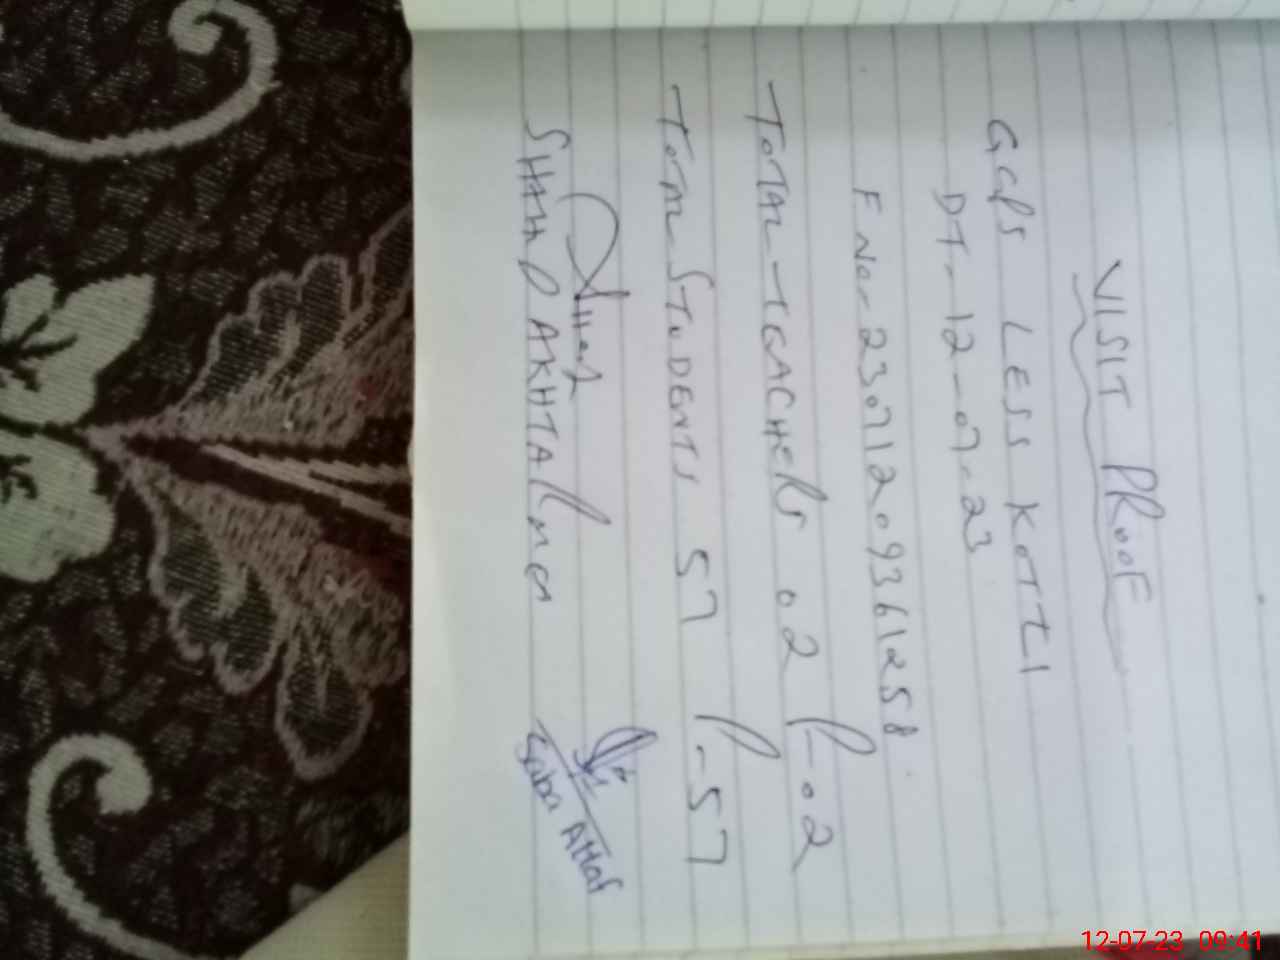 VISIT PROOF
GGPS LESS KOTTI
DT-12-07-23
F No-23071209361258
TOTAL-TEACHERS 02 P-02
TOTAL STUDENTS 57 P-57
SHAHD AKHTAR
Saba Attar
12-07-23 09:41